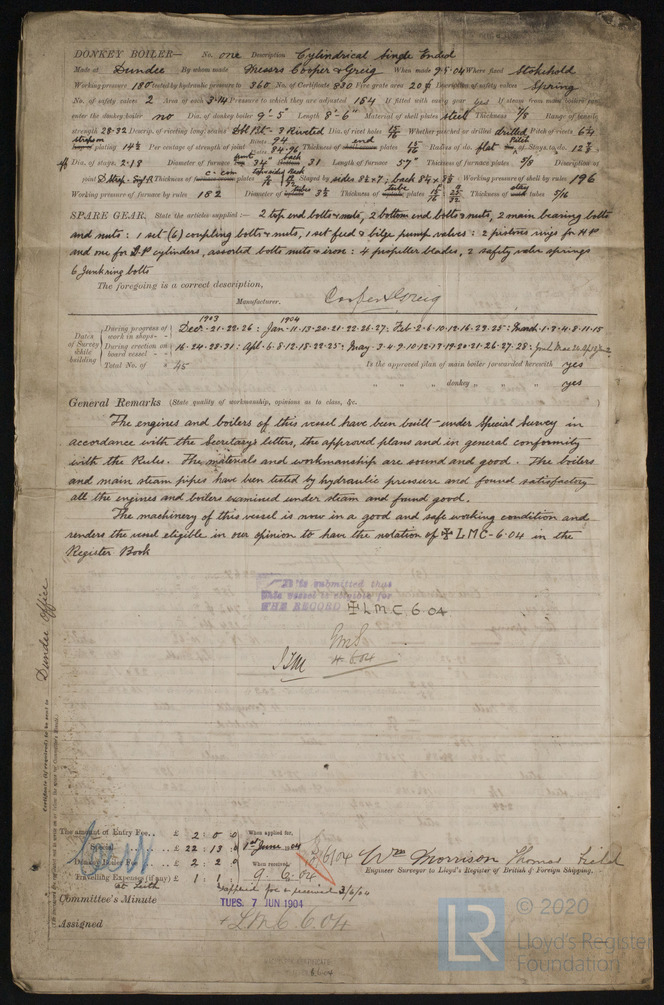 DONKEY BOILER— No. one Description Cylindrical Single Ended
Made at Dundee By whom made Messrs Cooper & Greig When made 9.5.04 Where fixed Stokehold
Working pressure 180 tested by hydraulic pressure to 360 No. of Certificate 830 Fire grate area 20 Description of safety valves Spring
No. of safety valves 2 Area of each 3.14 Pressure to which they are adjusted 184 If fitted with easing gear yes If steam from main boilers can
enter the donkey boiler no Dia. of donkey boiler 9'-5" Length 8'-6" Material of shell plates steel Thickness 7/8 Range of tensile
strength 28-32 Descrip. of riveting long. seams Dia. of rivet holes Whether punched or drilled drilled Pitch of rivets
plating 14½ Per centage of strength of joint Rivets 94 Plates 84.96 Thickness of end plates Radius of do. flat Pitch of Stays to do.
Dia. of stays 2.18 Diameter of furnace 34" back 31 Length of furnace 57" Thickness of furnace plates 5/8 Description of
joint Thickness of plates Stayed by sides back Working pressure of shell by rules 196
Working pressure of furnace by rules 182 Diameter of tubes 3½ Thickness of tube plates Thickness of stay tubes 5/16
SPARE GEAR. State the articles supplied:— 2 top end bolts & nuts, 2 bottom end bolts & nuts, 2 main bearing bolts
and nuts: 1 set (6) coupling bolts & nuts, 1 set feed & bilge pump valves: 2 pistons rings for HP
and one for cylinders, assorted bolts nuts & iron: 4 propeller blades, 2 safety valve springs
6 Junk ring bolts
The foregoing is a correct description,
Manufacturer. Cooper & Greig
Dates of Survey while building
During progress of work in shops - - 1903 Dec. 21.22.26: 1904 Jan. 11.13.20.21.22.26.27: Feb. 2.6.10.12.16.22.25: March 1.3.4.8.11.15
During erection on board vessel - - 16.24.28.31: Apl. 6.8.12.18.22.25: May 3.4.9.10.12.17.19.20.21.26.27.28:
Total No. of 45 Is the approved plan of main boiler forwarded herewith yes
" " " donkey " " " yes
General Remarks (State quality of workmanship, opinions as to class, &c.
The engines and boilers of this vessel have been built under Special Survey in
accordance with the Secretary's letters, the approved plans and in general conformity
with the Rules. The materials and workmanship are sound and good. The boilers
and main steam pipes have been tested by hydraulic pressure and found satisfactory
all the engines and boilers examined under steam and found good.
The machinery of this vessel is now in a good and safe working condition and
renders the vessel eligible in our opinion to have the notation of ✠ LMC-6.04 in the
Register Book
It is submitted that
this vessel is eligible for
THE RECORD ✠ L.M.C. 6.04
Dundee Office
The amount of Entry Fee. . £ 2 : 0 : 0 When applied for,
Special . . £ 22 : 13 : 0 1st June 04
Donkey Boiler Fee . . £ 2 : 2 : 0 When received,
Travelling Expenses (if any) £ 1 : 1 : 9.6.04
at Leith
Wm Morrison Thomas Field
Engineer Surveyor to Lloyd's Register of British & Foreign Shipping.
Committee's Minute TUES. 7 JUN 1904
Assigned + LMC 6.04
LR © 2020
Lloyd's Register
Foundation